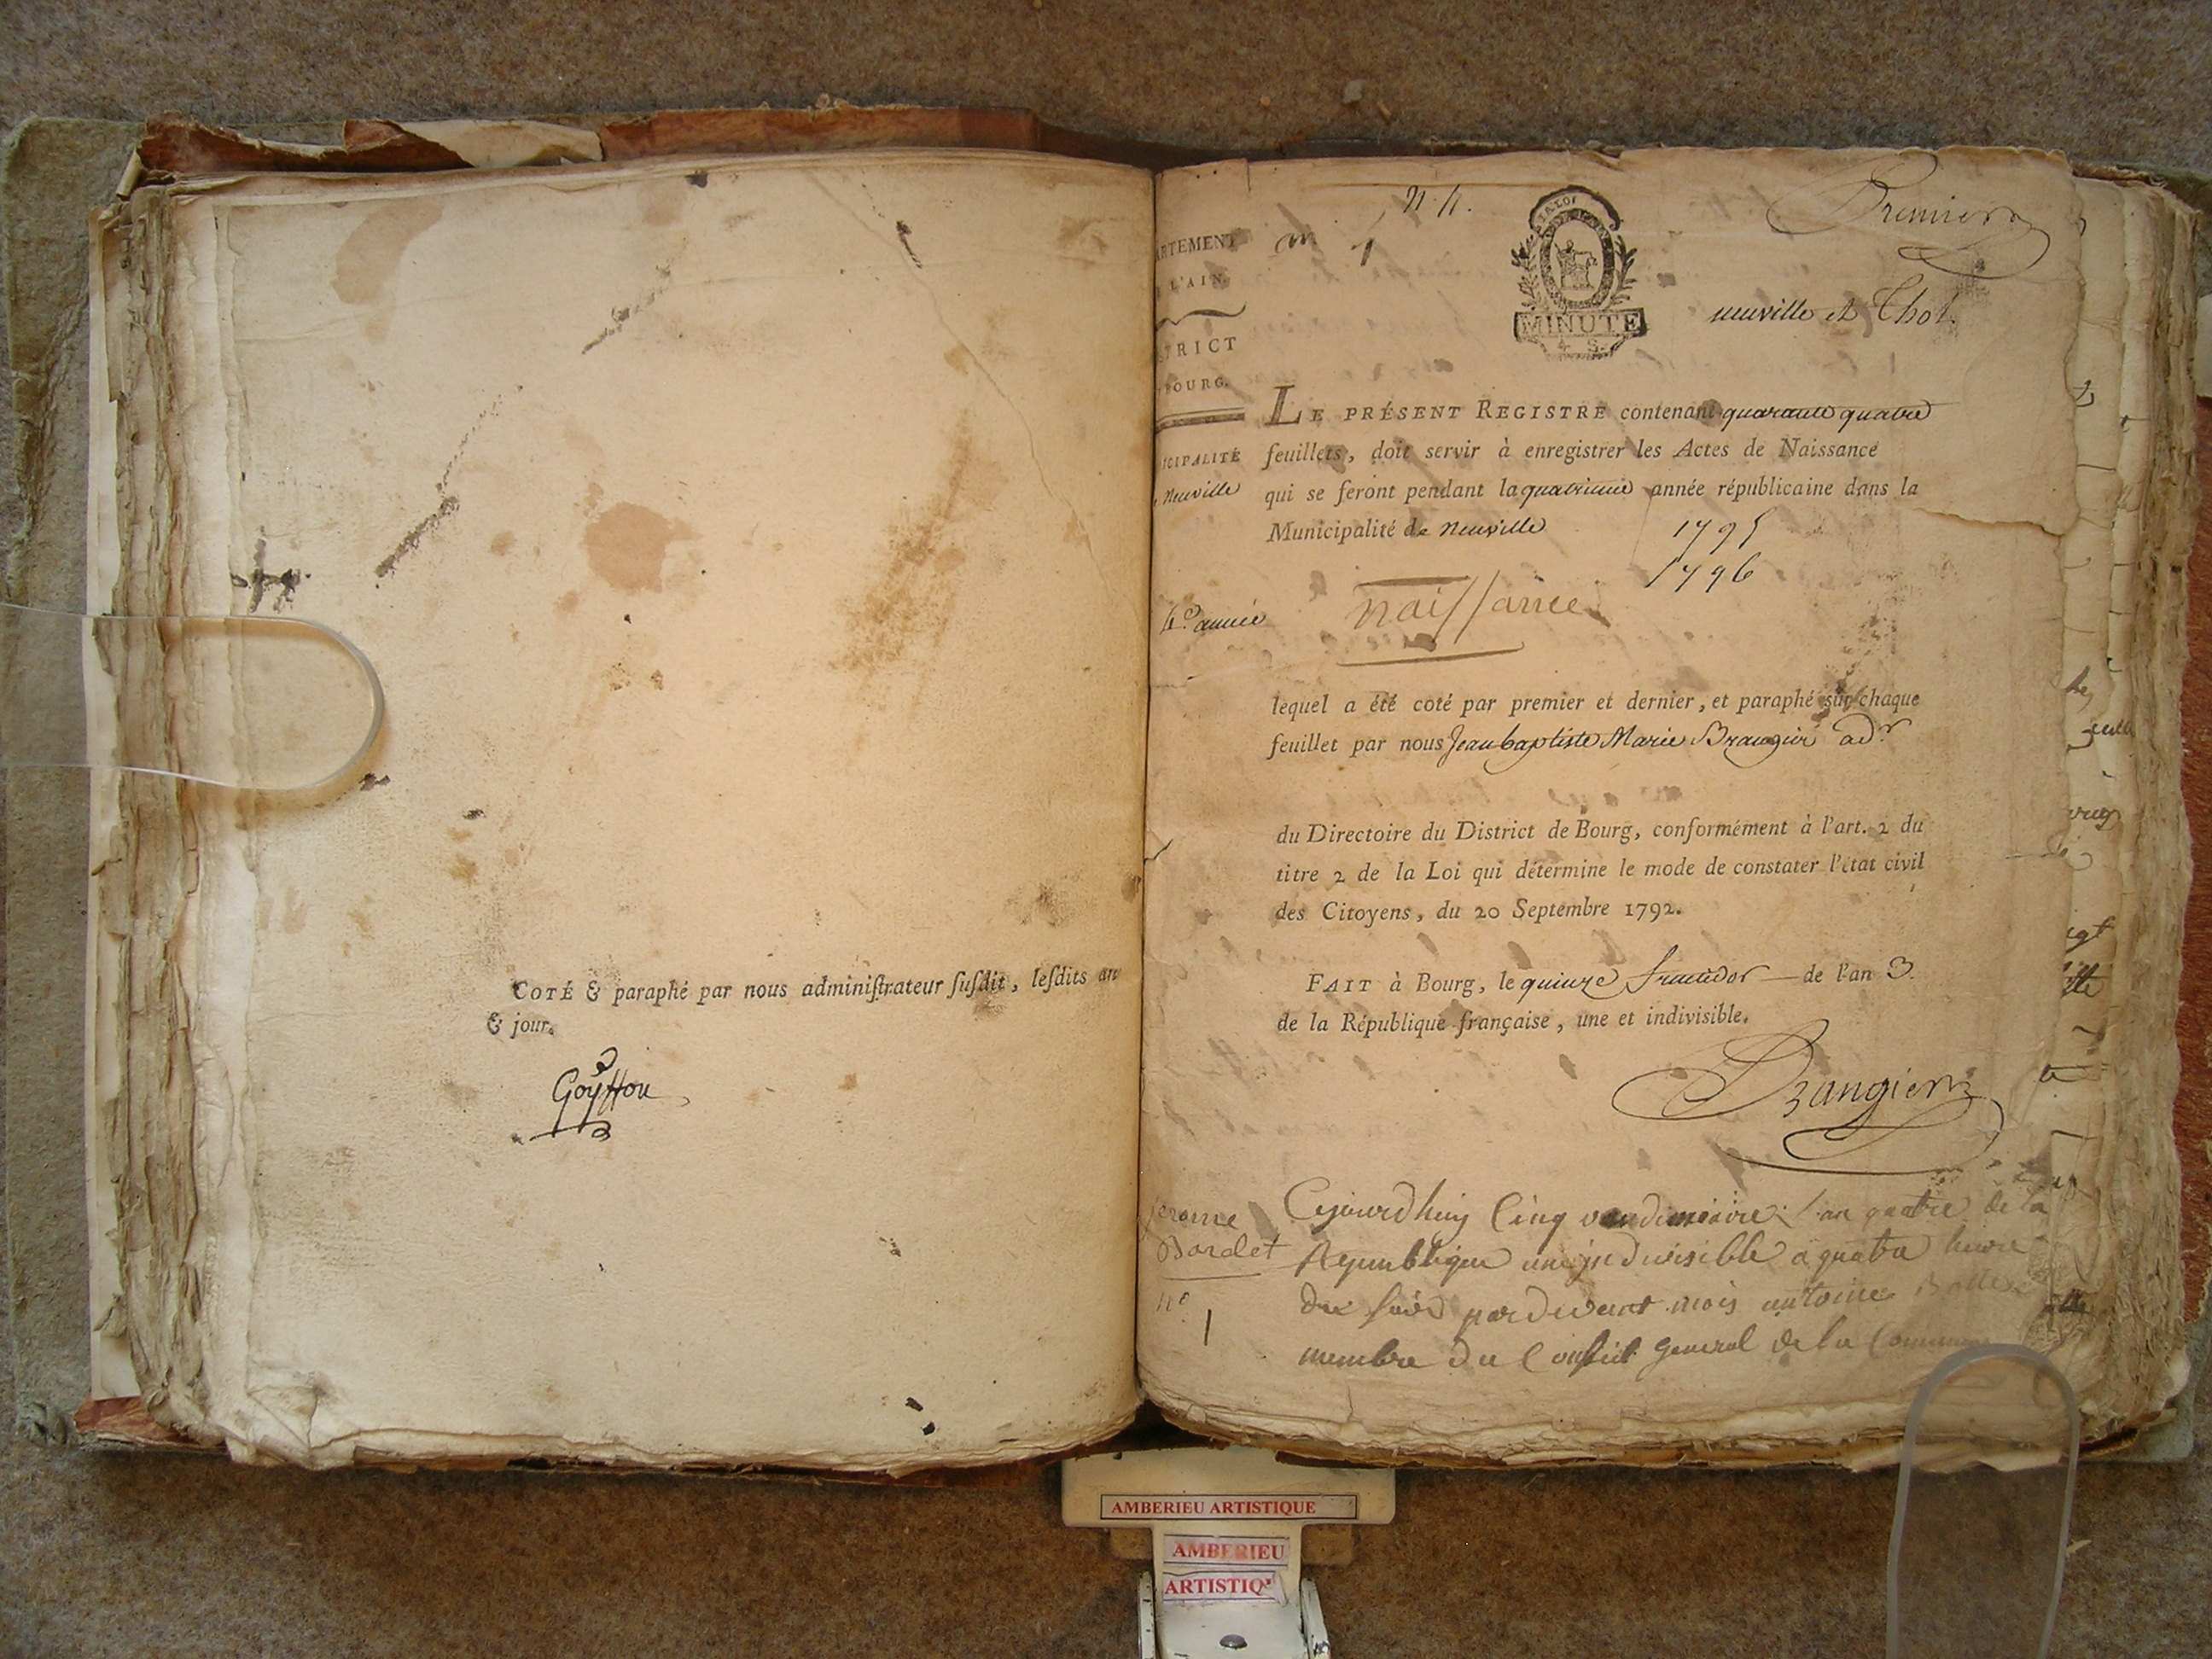 COTÉ & paraphé par nous adminiſtrateur ſuſdit, leſdits an
& jour.
Goyffou
n. 4.
1
LA LOI
MINUTE
4 S.
Premier
neuville et Thol.
ARTEMENT
L'AIN.
TRICT
BOURG.
ICIPALITÉ
Neuville
4e. année
LE PRÉSENT REGISTRE contenant quarante quatre
feuillets, doit servir à enregistrer les Actes de Naissance
qui se feront pendant la quatrieme année républicaine dans la
Municipalité de neuville
1795
1796
naissance
lequel a été coté par premier et dernier, et paraphé sur chaque
feuillet par nous Jean baptiste Marie Brangier adr
du Directoire du District de Bourg, conformément à l'art. 2 du
titre 2 de la Loi qui détermine le mode de constater l'état civil
des Citoyens, du 20 Septembre 1792.
FAIT à Bourg, le quinze fructidor de l'an 3.
de la République française, une et indivisible.
Brangier
jerome
Bardet
no
1
Cejourdhuy Cinq vandemiaire l'an quatre de la
Republique une indivisible a quatre heure
du soir pardevant mois antoine
membre du Conseil general de la Commune
AMBERIEU ARTISTIQUE
AMBERIEU
ARTISTIQ